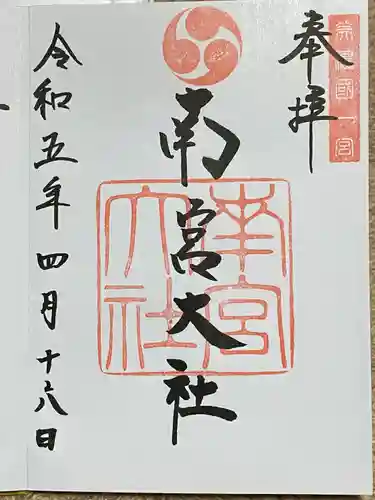 美濃國一宮
奉拝
南宮大社
南宮大社
令和五年四月十六日